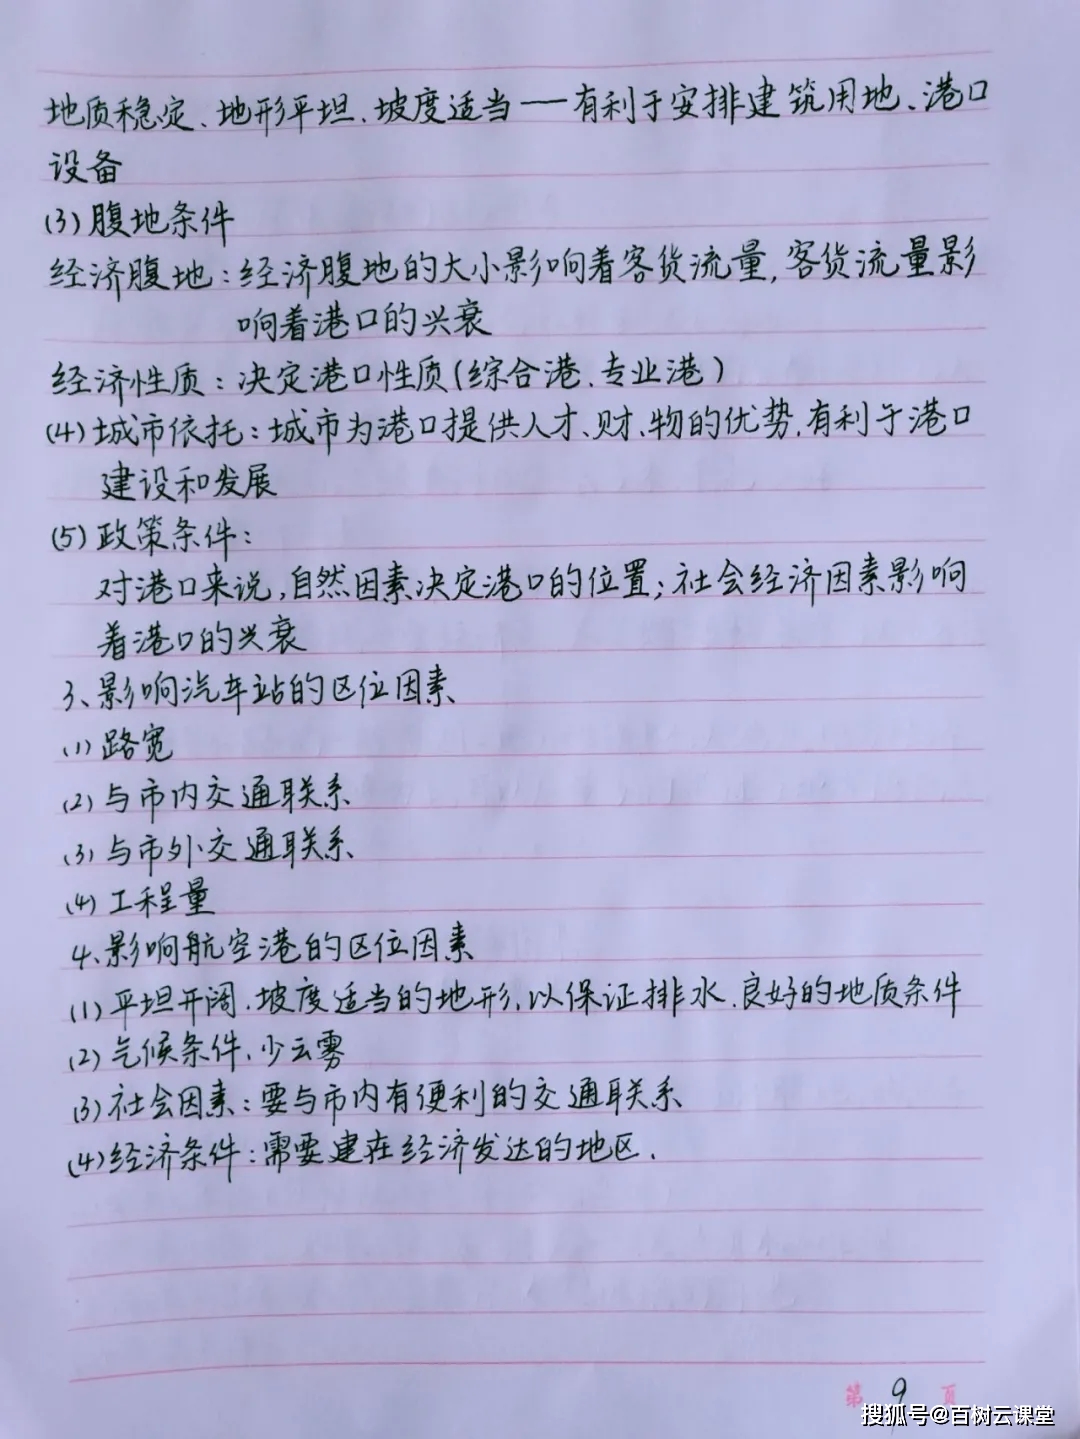 地质稳定、地形平坦、坡度适当——有利于安排建筑用地、港口
设备
(3)腹地条件
经济腹地:经济腹地的大小影响着客货流量,客货流量影
响着港口的兴衰
经济性质:决定港口性质(综合港、专业港)
(4)城市依托:城市为港口提供人才、财、物的优势,有利于港口
建设和发展
(5)政策条件:
对港口来说,自然因素决定港口的位置;社会经济因素影响
着港口的兴衰
3、影响汽车站的区位因素
(1)路宽
(2)与市内交通联系
(3)与市外交通联系
(4)工程量
4、影响航空港的区位因素
(1)平坦开阔、坡度适当的地形,以保证排水、良好的地质条件
(2)气候条件、少云雾
(3)社会因素:要与市内有便利的交通联系
(4)经济条件:需要建在经济发达的地区.
第9页
搜狐号@百树云课堂